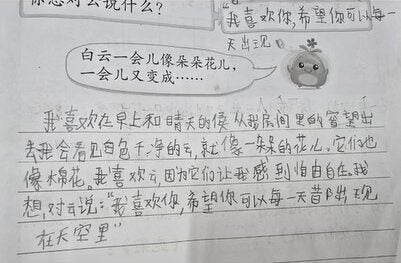 你想对云说什么？
"我喜欢你，希望你可以每一
天出现
白云一会儿像朵朵花儿，
一会儿又变成……
我喜欢在早上和晴天的侯从我房间里的窗望出
去我会看见白色干净的云，就像一朵朵的花儿。它们也
像棉花。我喜欢云，因为它们让我感到怕自由自在。我
想，对云说："我喜欢你，希望你可以每一天昔出现
在天空里"